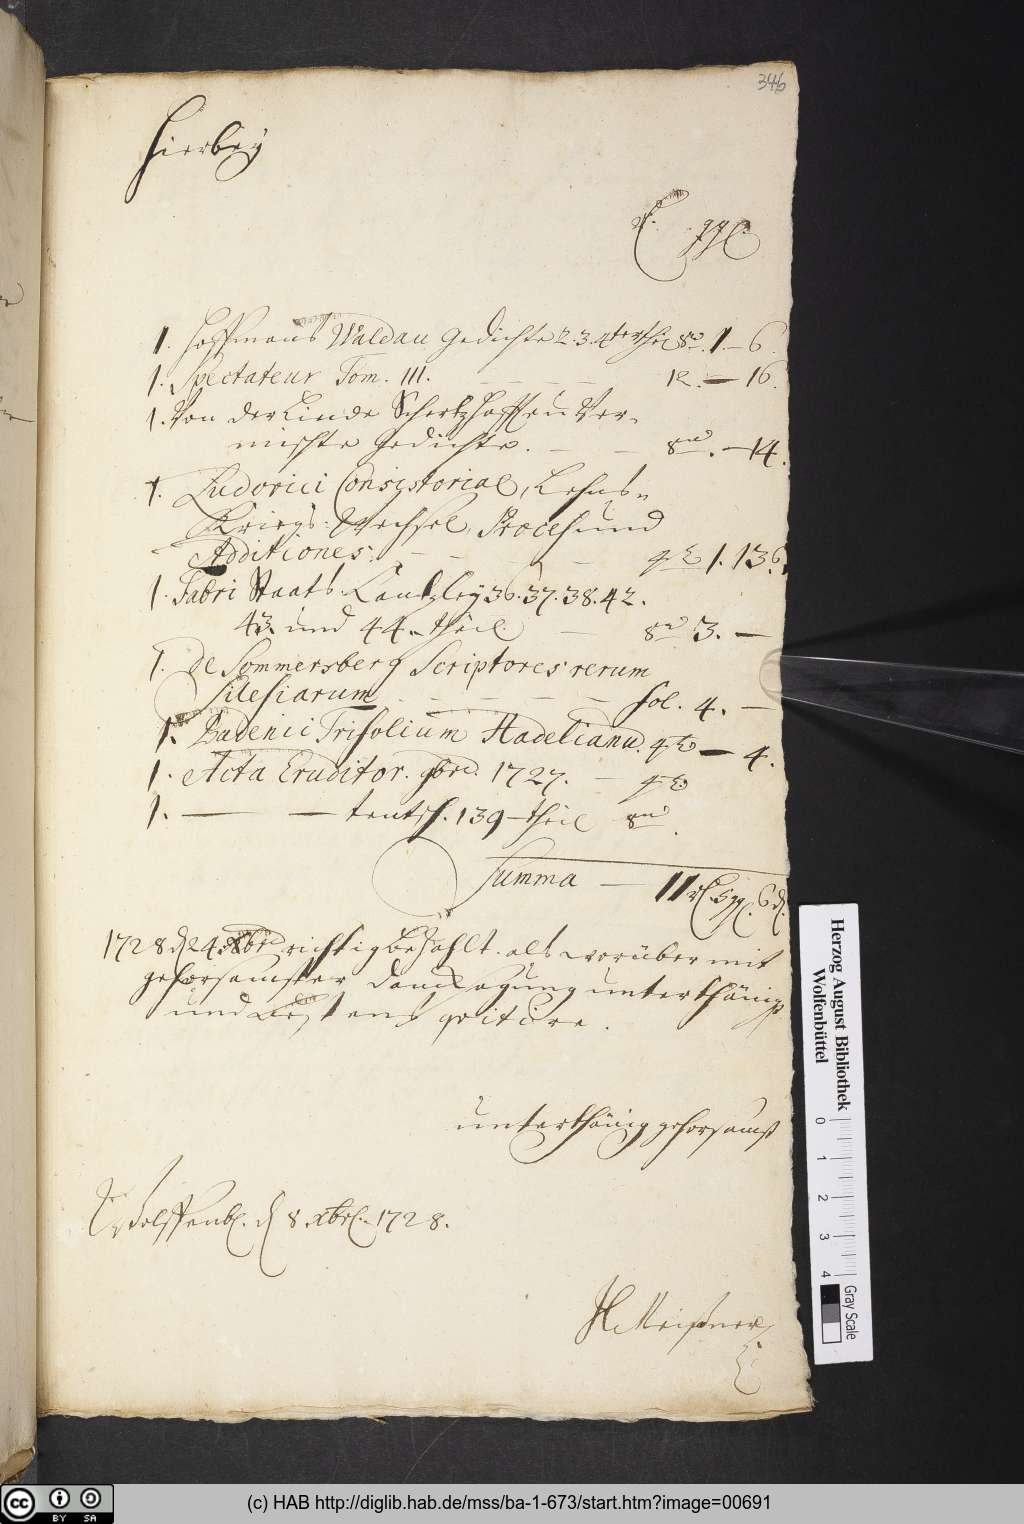 346
Hierbey
rl. ggl.
1. Hoffmans Waldau Gedichte 2. 3. 4ter theil 8vo. 1. – 6.
1. Spectateur Tom. III. — — — 12. — 16.
1. Von der Linde Schertzhafften Ver-
mischte Gedichte. — — 8vo. — 14.
1. Ludovici Consistorial, Lehns-
Kriegs: Wechsel, Process und
Additiones. — — — — 4to 1. 13. 6.
1. Fabri Staats Cantzley 36. 37. 38. 42.
43. und 44. theil. — 8vo 3. —
1. de Sommersberg Scriptores rerum
Silesiarum — — — — fol. 4. —
1. Trifolium 4to — 4.
1. Acta Eruditor. 9bre. 1727. — 4to
1. — — teutsch. 139 theil 8vo.
Summa — 11 rl. 5 ggl. 6 d.
1728 d 24 xbre richtig bezahlt. als worüber mit
gehorsamster Dancksagung unterthänigst
und bestens qvitire.
unterthänig gehorsamst
Wolffenb. d 8. xbrl. 1728.
Meißner
Herzog August Bibliothek
Wolfenbüttel
0 1 2 3 4
Gray Scale
cc BY SA
(c) HAB http://diglib.hab.de/mss/ba-1-673/start.htm?image=00691